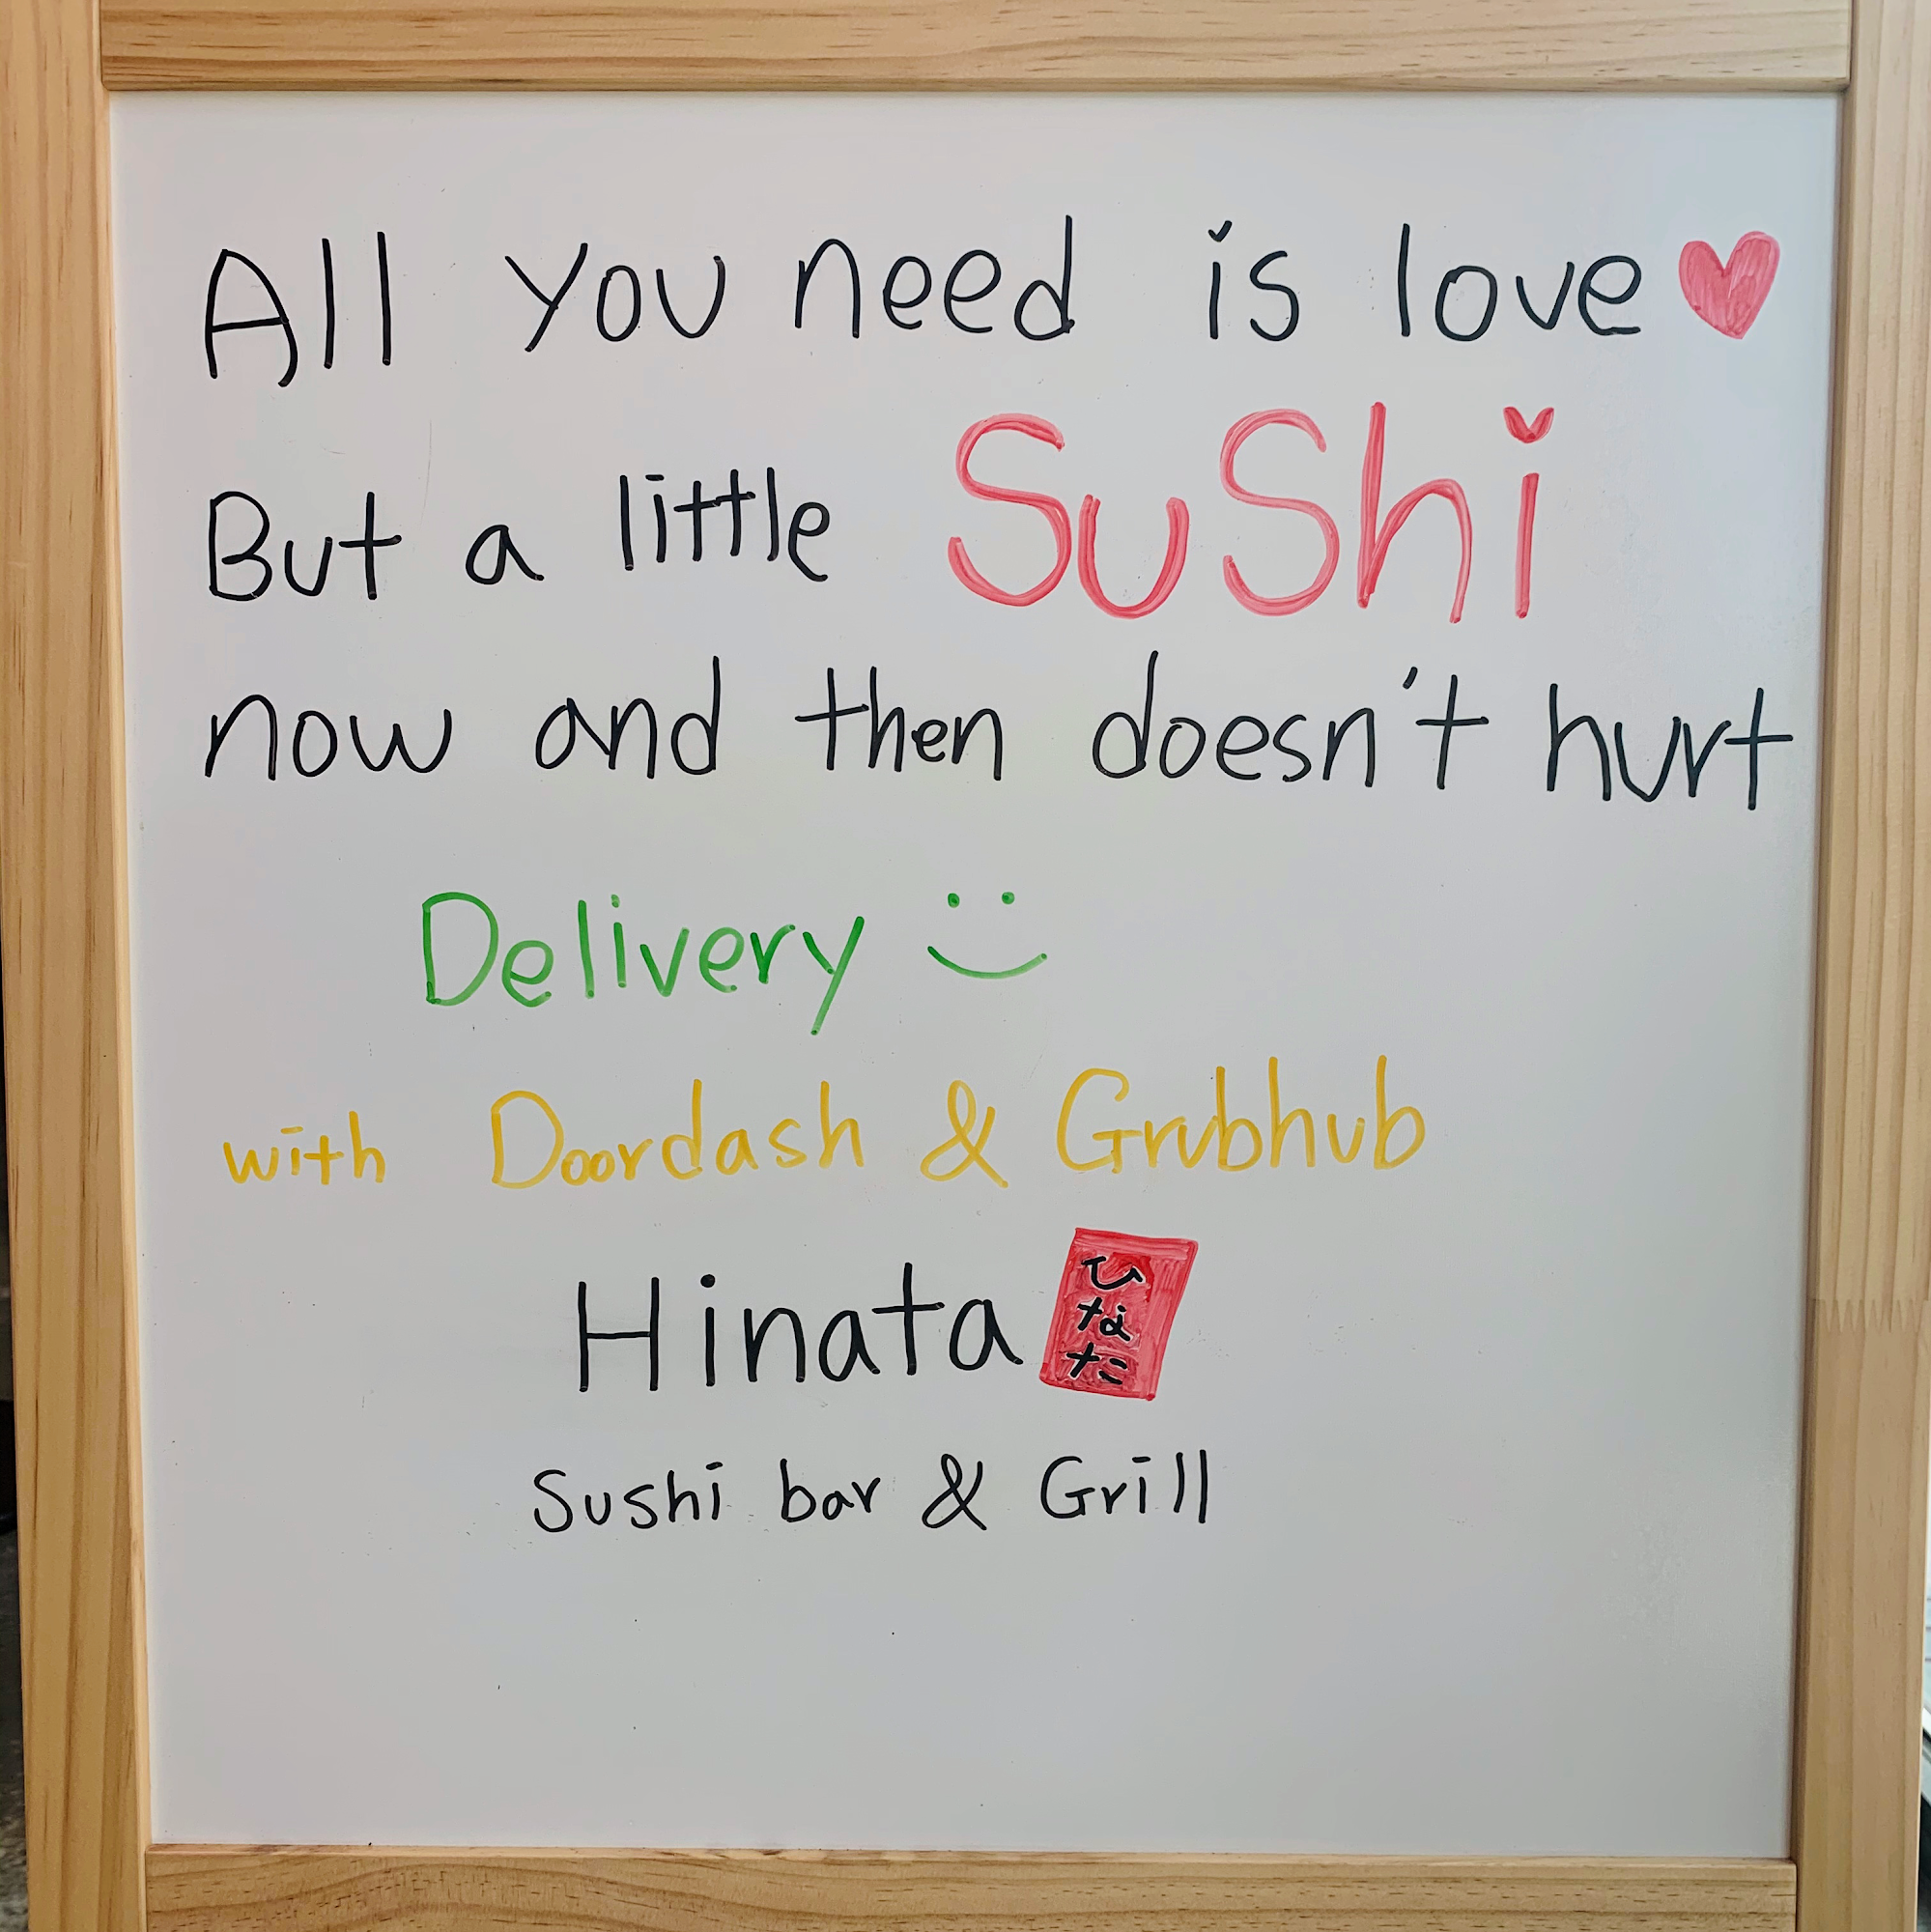 All you need is love
But a little SuShi
now and then doesn't hurt
Delivery
with Doordash & Grubhub
Hinata ひなた
Sushi bar & Grill